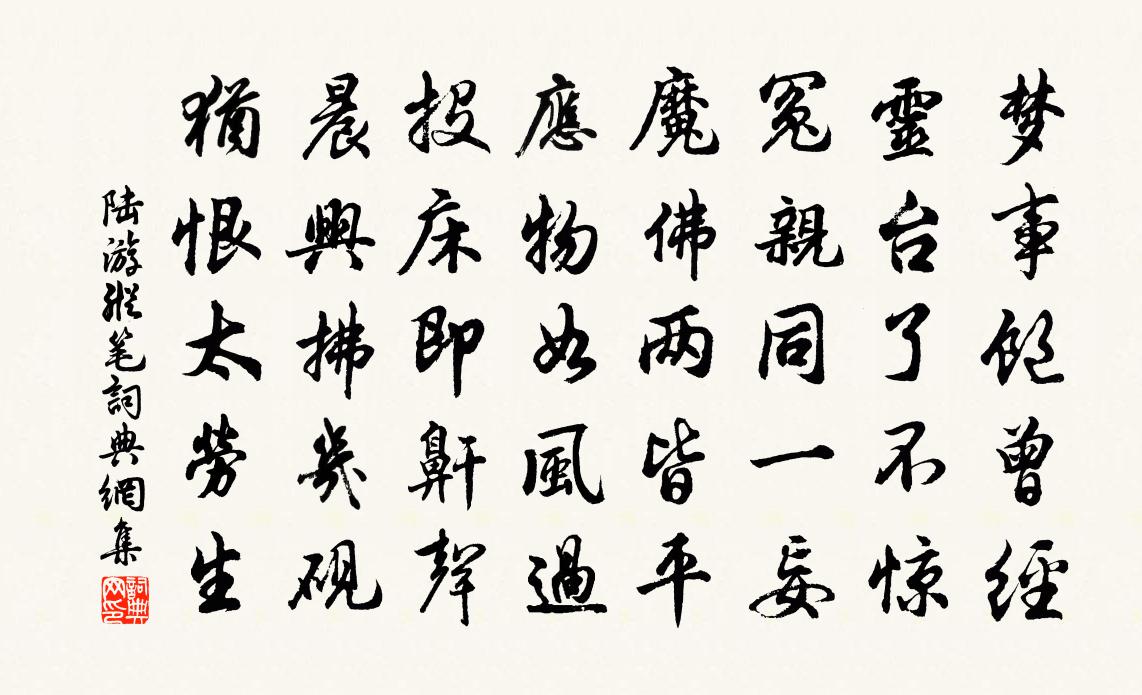 梦事飽曾經
靈台了不惊
冤親同一妄
魔佛兩皆平
應物如風過
投床即鼾聲
晨興拂幾硯
猶恨太勞生
陆游縱笔詞典網集
詞典网印